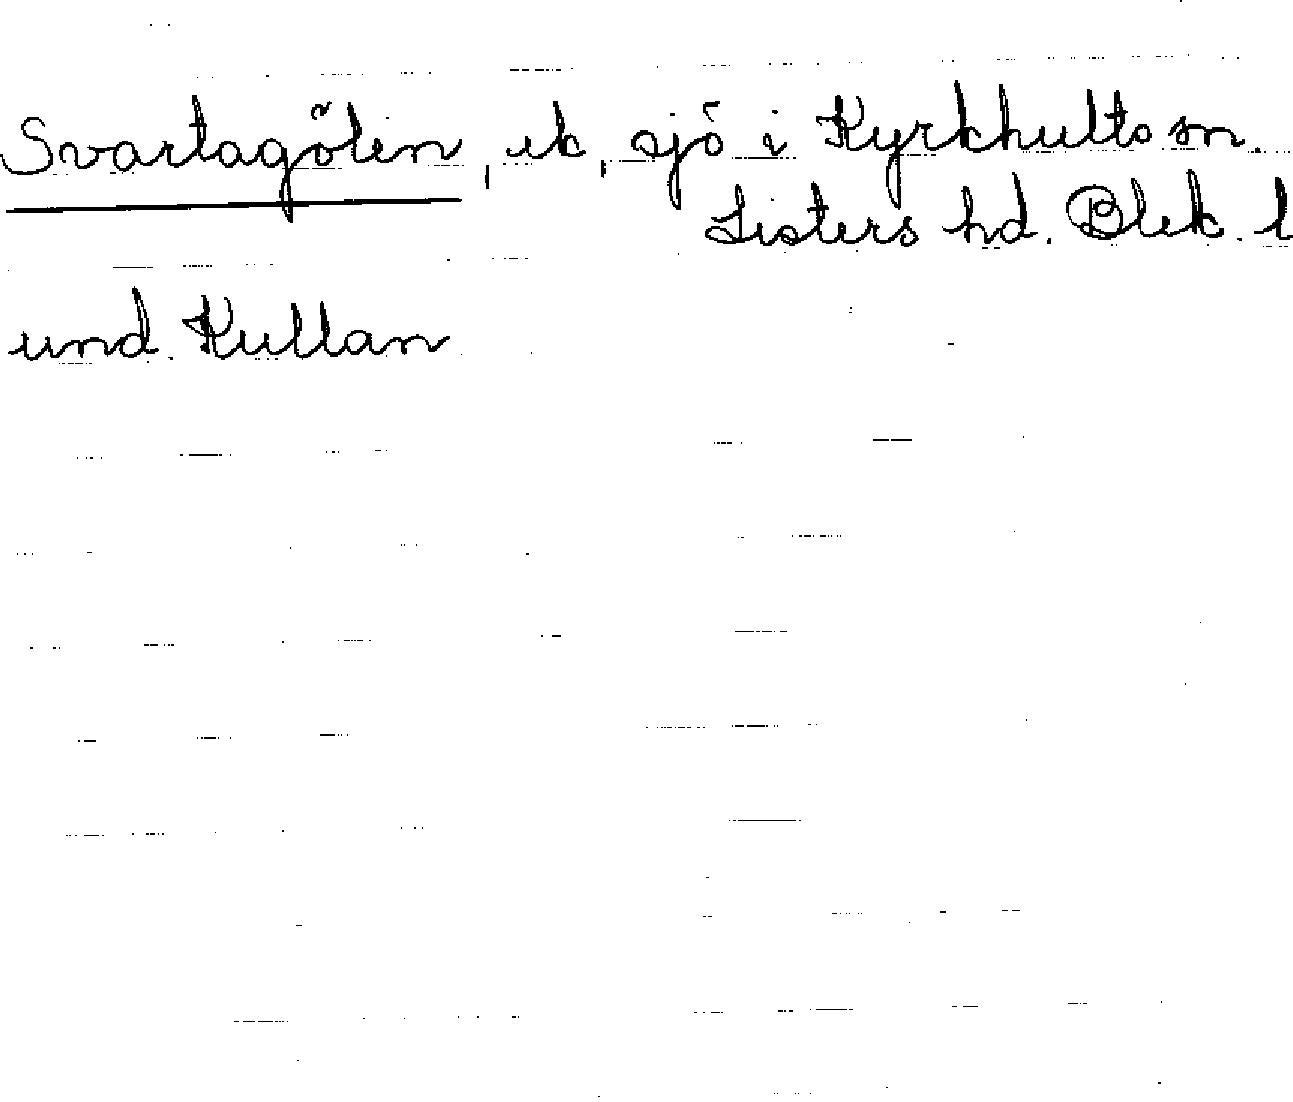 Svartagölen, ek, sjö i Kyrkhults sn.
Listers hd. Blek. l
und. Kullan